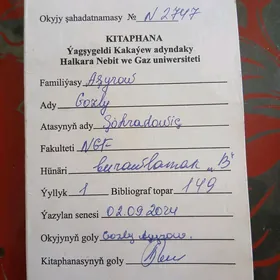 Okyjy şahadatnamasy № N 2747
KITAPHANA
Ýagşygeldi Kakaýew adyndaky
Halkara Nebit we Gaz uniwersiteti
Familiýasy Aşyrow
Ady Gozly
Atasynyň ady Şöhradowiç
Fakulteti NGF
Hünäri burawlamak "B"
Ýyllyk 1 Bibliograf topar 149
Ýazylan senesi 02.09.2024
Okyjynyň goly Gozly Aşyrow.
Kitaphanasynyň goly